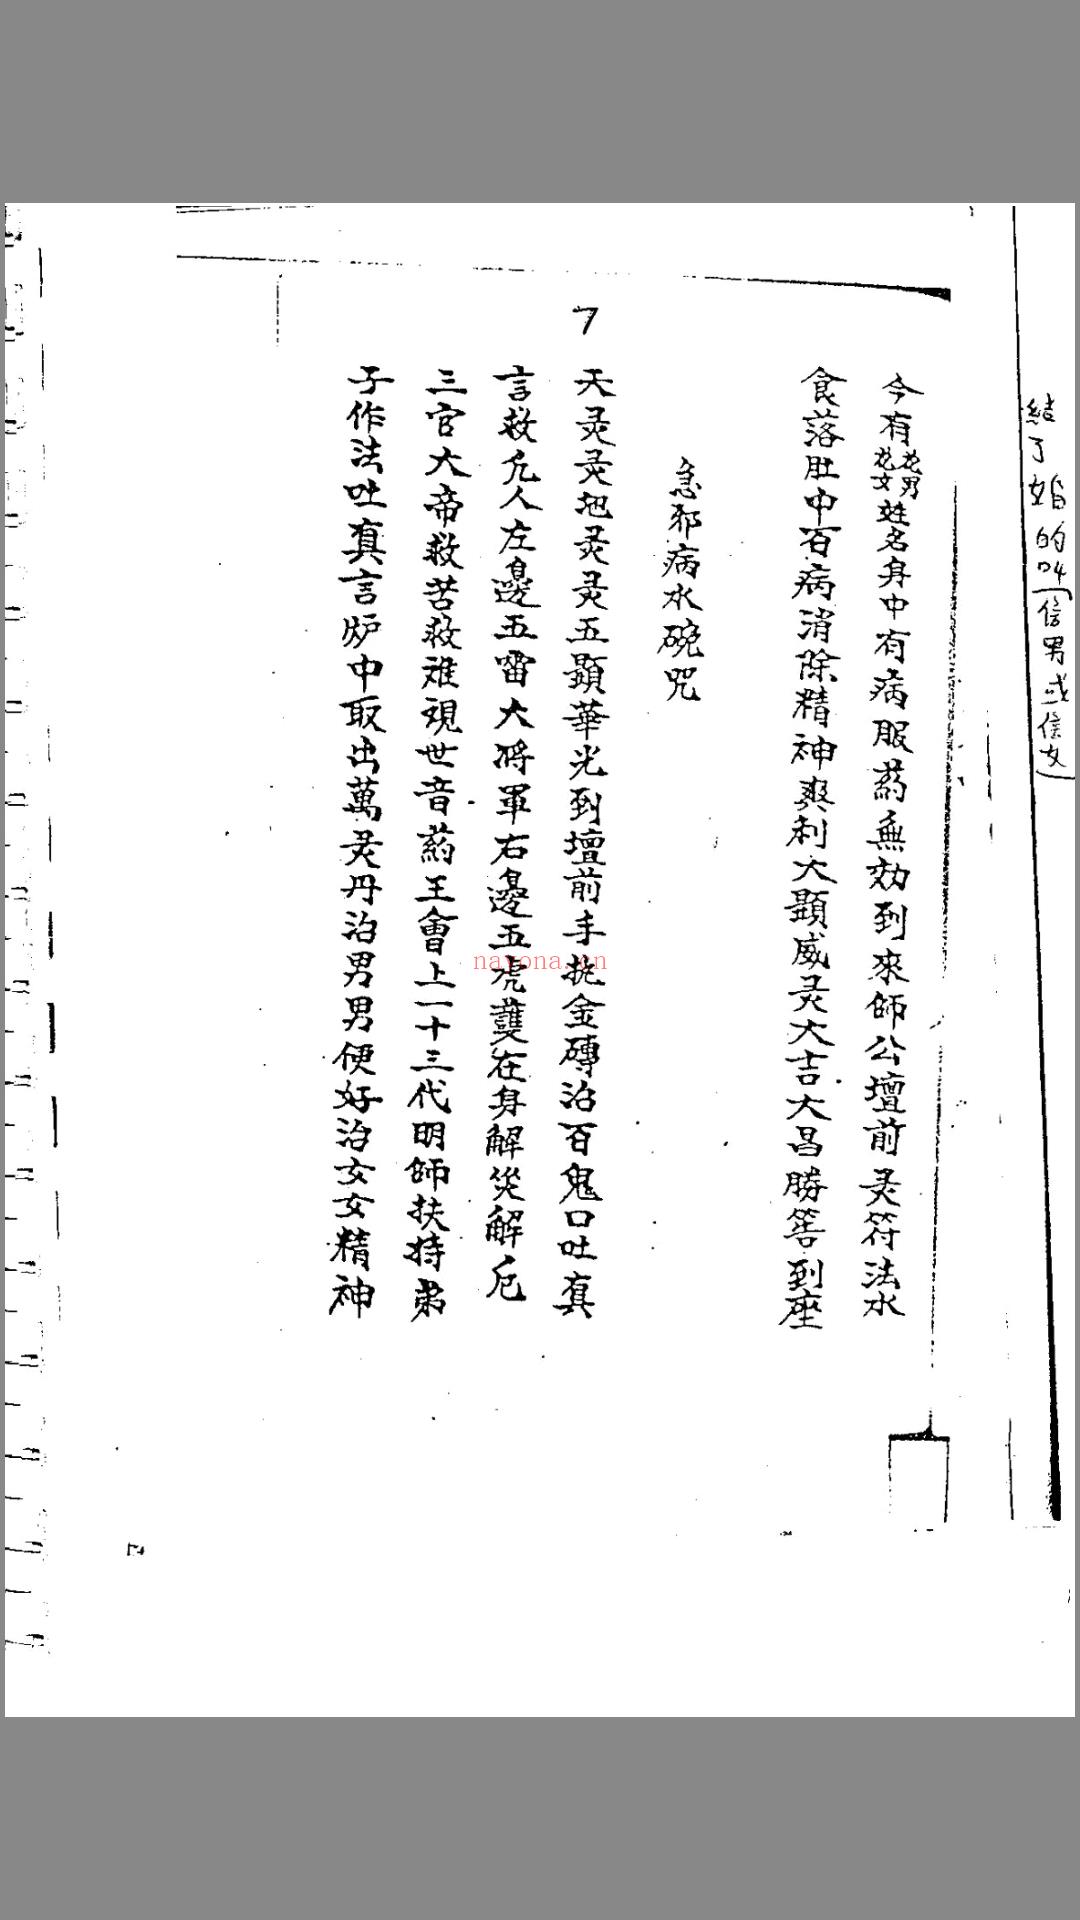 結了婚的叫(信男或信女)
今有花男花女姓名身中有病服葯無効到來師公壇前灵符法水
食落肚中百病消除精神爽利大顯威灵大吉大昌勝筶到座
急邪病水碗咒
7
天灵灵地灵灵五顯華光到壇前手托金磚治百鬼口吐真
言救凢人左邊五雷大将軍右邊五虎護在身解災解厄
三官大帝救苦救难視世音葯王會上一十三代明師扶持弟
子作法吐真言炉中取出萬灵丹治男男便好治女女精神
nayona.cn